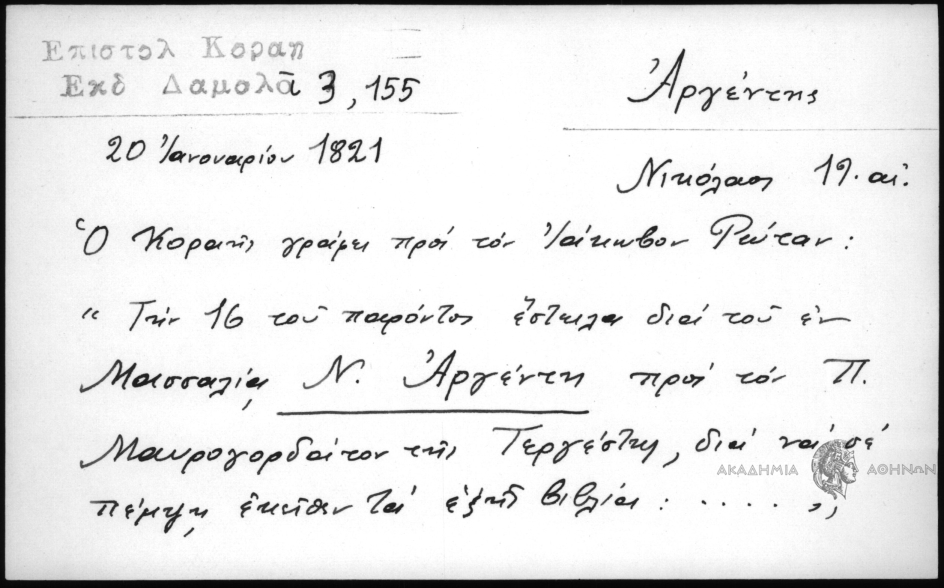 Επιστολ Κοραη
Εκδ Δαμαλᾶ 3, 155
Ἀργέντης
20 Ἰανουαρίου 1821
Νικόλαος 19. αἰ.
Ὁ Κοραῆς γράφει πρὸς τὸν Ἰάκωβον Ρώταν :
“ Τὴν 16 τοῦ παρόντος ἔστειλα διὰ τοῦ ἐν
Μασσαλίᾳ Ν. Ἀργέντη πρὸς τὸν Π.
Μαυρογορδᾶτον τῆς Τεργέστης, διὰ νὰ σὲ
πέμψῃ ἐκεῖθεν τὰ ἑξῆς βιβλία : . . . . „
ΑΚΑΔΗΜΙΑ ΑΘΗΝΩΝ